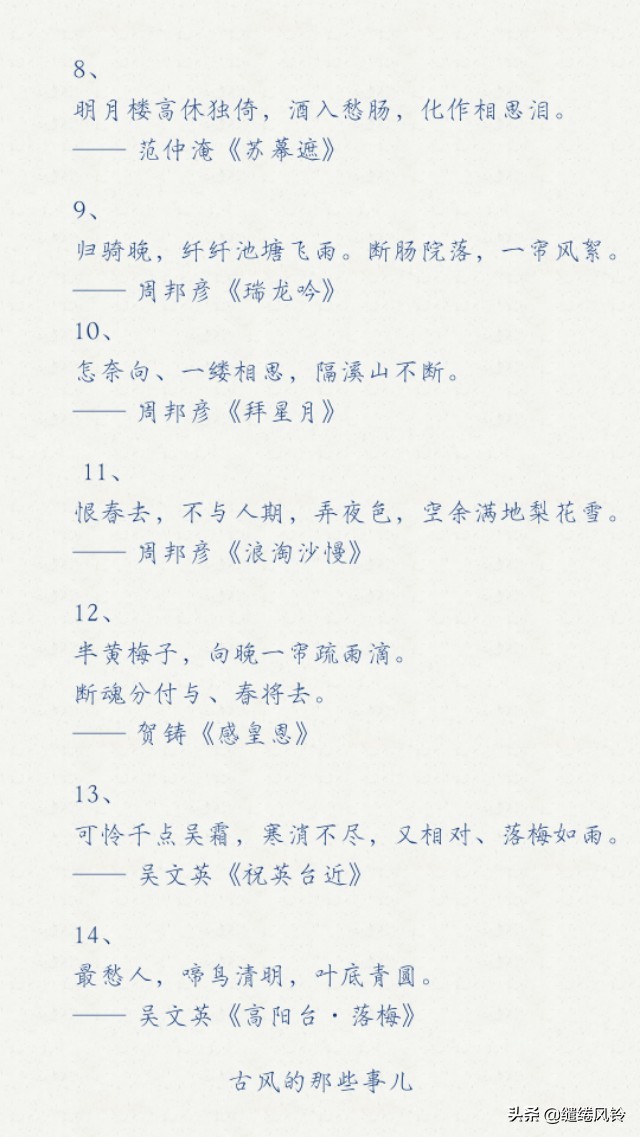 8、
明月楼高休独倚，酒入愁肠，化作相思泪。
—— 范仲淹《苏幕遮》
9、
归骑晚，纤纤池塘飞雨。断肠院落，一帘风絮。
—— 周邦彦《瑞龙吟》
10、
怎奈向、一缕相思，隔溪山不断。
—— 周邦彦《拜星月》
11、
恨春去，不与人期，弄夜色，空余满地梨花雪。
—— 周邦彦《浪淘沙慢》
12、
半黄梅子，向晚一帘疏雨滴。
断魂分付与、春将去。
—— 贺铸《感皇恩》
13、
可怜千点吴霜，寒消不尽，又相对、落梅如雨。
—— 吴文英《祝英台近》
14、
最愁人，啼鸟清明，叶底青圆。
—— 吴文英《高阳台·落梅》
古风的那些事儿
头条 @缱绻风铃